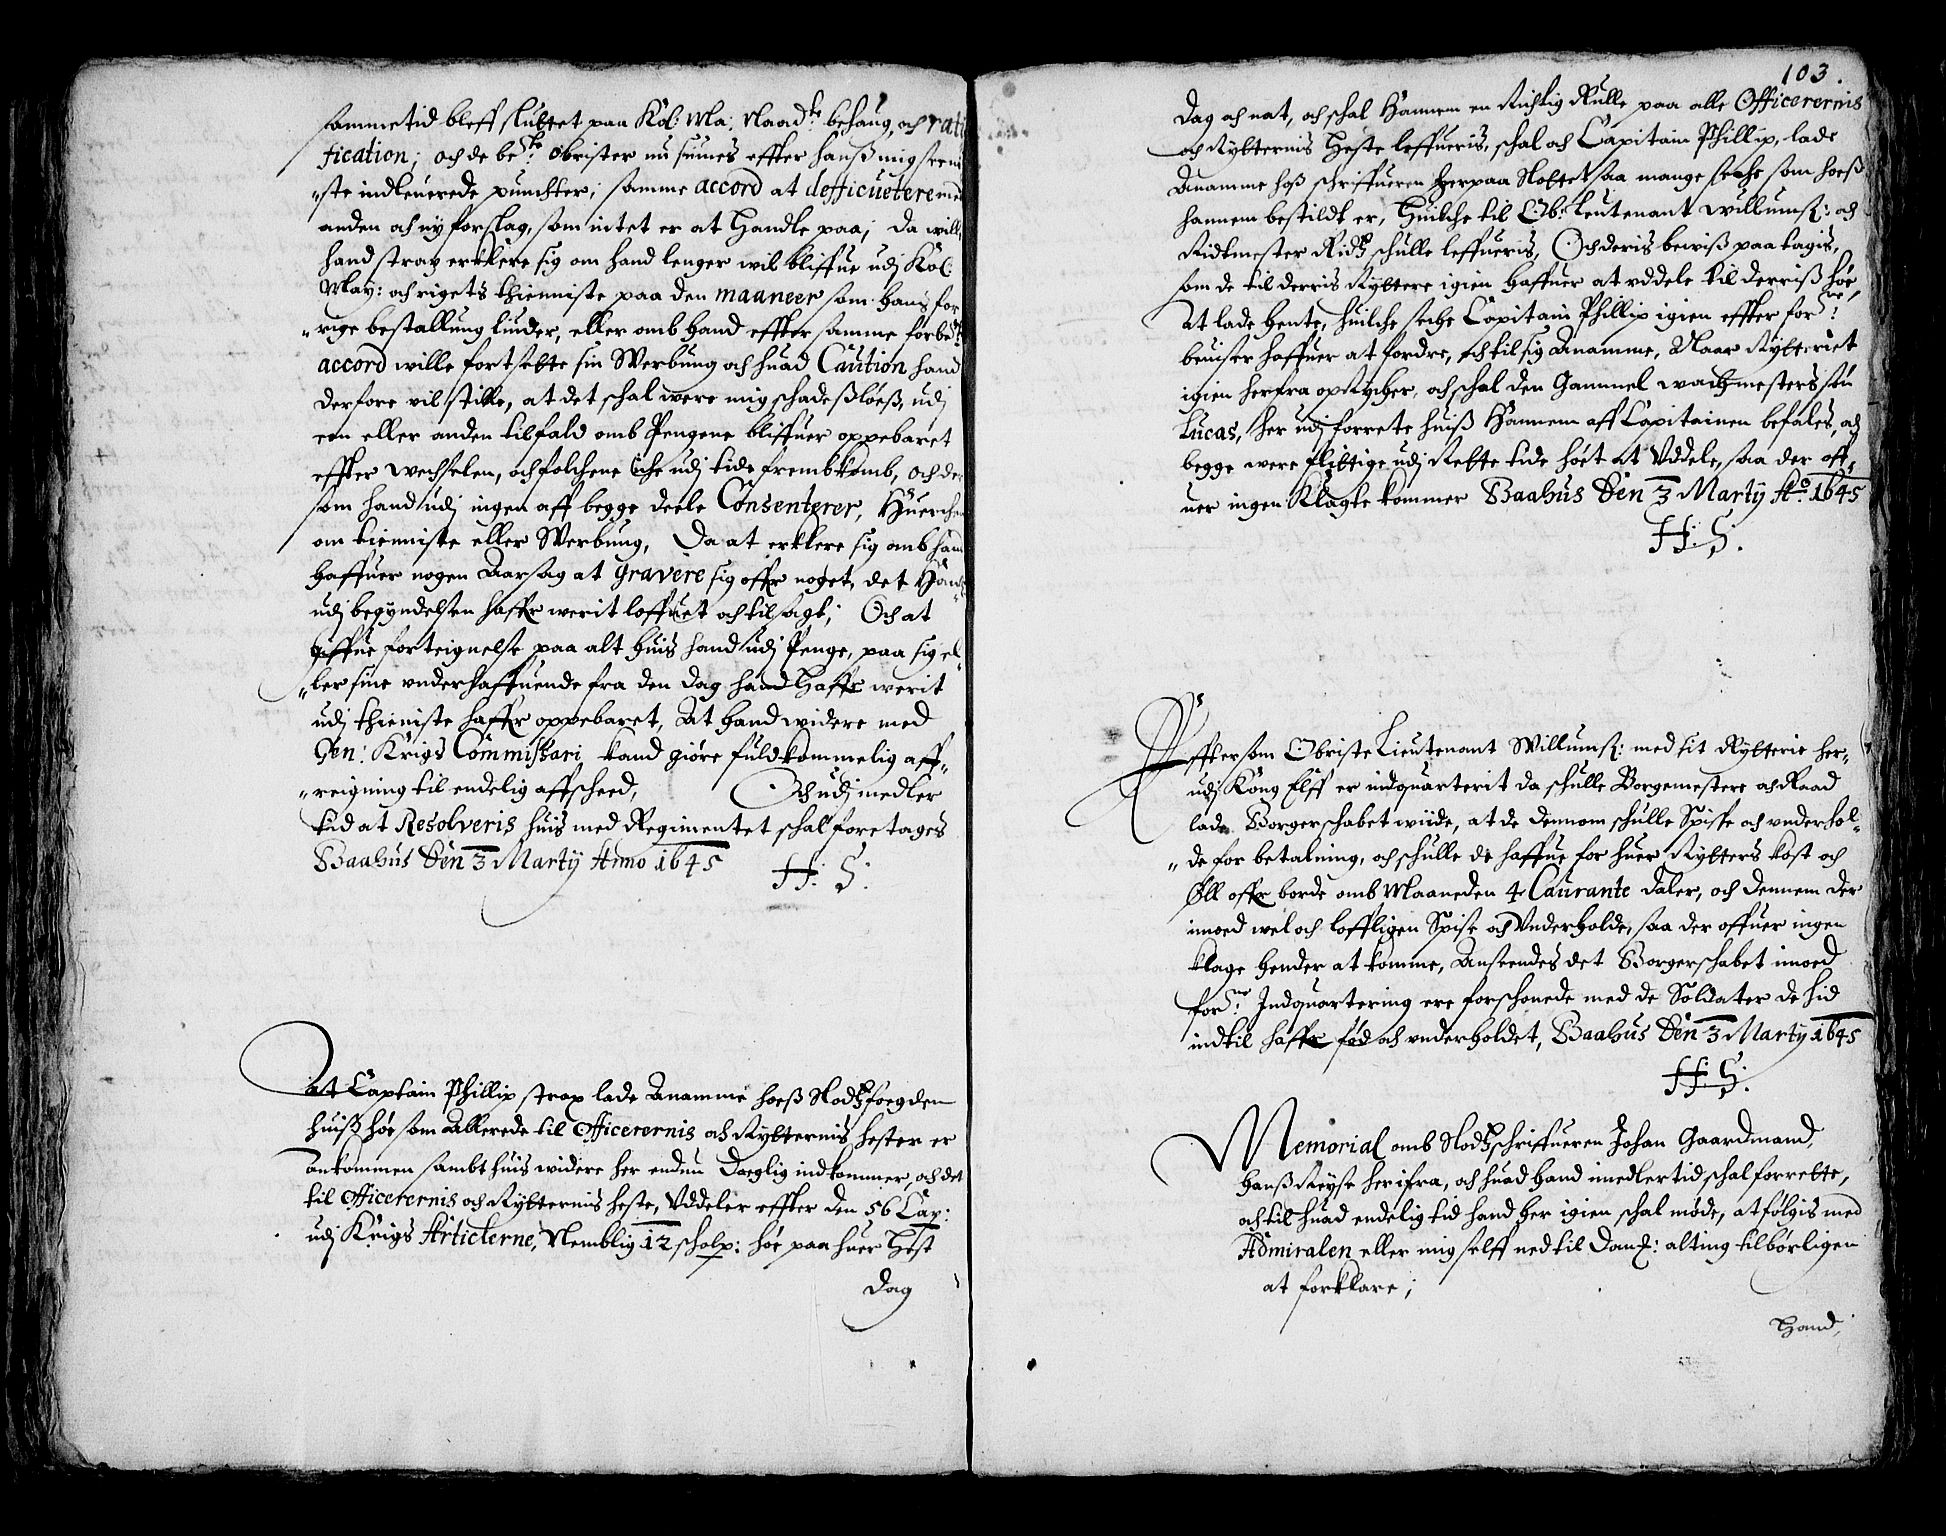 sammetid bleff sluttet paa Kol: Ma: Naad: behaug, och rati
fication; och de be:te obrister nu siunes effter hanß mig seeni
"ste indleuerede punchter; samme accord at defficuetere med
anden och ny forslag, som intet er at handle paa; Da will
hand strax erklere sig om hand lenger wil bliffue udj Kol:
May: och rigets thienniste paa den maaneer som hans for
"rige bestallung liuder, eller omb hand effter samme forbe:te
accord wille fortsette sin Werbung och huad Caution hand
derfore vil stille, at det schal were mig schadesløeß, udj
een eller anden tilfald omb Pengene bliffuer oppebaret
effter wechselen, och folchene iche udj tide frembkomb, och der
som hand udj ingen aff begge deele Consenterer, Huerchen
om tienniste eller Werbung, Da at erklere sig omb hand
haffuer nogen Aarsag at gravere sig offr noget, det hand
udj begyndelsen haffr werit loffuet och tilsagt; Och at
giffue forteignelse paa alt huis hand udj Penge, paa sig el"
"ler sine underhaffuende fra den dag hand haffr werit
udj thieniste haffr oppebaret, At hand widere med
Gen: Krigs Commissari kand giøre fuldkommelig aff"
"reigning til endelig affscheed, Och udj medler
tid at Resolveris huis med Regimentet schal foretages
Baahus Den 3 Marty Anno 1645
H: S:
At Captain Phillip strax lade Anamme hoeß Slodtzfoegden
huiß høe som Allerede til Officerernis och Rytternis hester er
ankommen sambt huis widere her endnu daeglig indkommer, och det
til Officerernis och Rytternis heste, Uddeler effter den 56 Cap:
udj Krigs Articlerne, Nemblig 12 scholp: høe paa huer Hest
Dag
103.
Dag och nat, och schal Hannem en Richtig Rulle paa alle Officerernis
och Rytternis Heste leffueris, schal och Capitain Phillip, lade
Anamme hoß schriffueren her paa Slottet saa mange seche som hoeß
hannem bestildt er, Huilche til Ob: Leutenant Willumß: och
Ridtmester Ridtz schulle leffueris, Och deris bewiß paa tagis,
som de til derris Ryttere igien haffuer at uddele til derriß høe,
At lade hente, huilche seche Capitain Phillip igien effter for:ne
beuiser haffuer at fordre, och til sig Anamme, Naar Rytteriet
igien herfra opRycher, och schal den Gammel wachmesters søn
Lucas, her udj forrete huiß Hannem aff Capitainen befales, och
begge were flittige udj Rette tide høet at Uddele, saa der off"
uer ingen Klagte kommer Baahus Den 3 Marty Ao 1645
H: S:
Effter som Obriste Lieutenant Willumß: med sit Rytterie her"
udj Kong Elff er indquarterit da schulle Borgemestere och Raad
lade Borgerschabet wiide, at de dennom schulle Spisse och underhol"
"de for betalning, och schulle de haffue for huer Rytters kost och
Øll offr borde omb Maaneden 4 Caurante daler, och dennem der
imoed wel och loffligen Spise och Underholde, saa der offuer ingen
klage hender at komme, Anseendes det Borgerschabet imoed
for:ne Indquartering ere forschonede med de Soldater de hid
indtil haffr fød och underholdet, Baahus Den 3 Marty 1645
H: S:
Memorial omb Slodtzschriffueren Johan Gaardmand,
hanß Reyse herifra, och huad hand imedlertid schal forrette,
och til huad endelig tid hand her igien schal møde, at følgis med
Admiralen eller mig selff ned til Danm: alting tilbørligen
at forklare;
Hand,